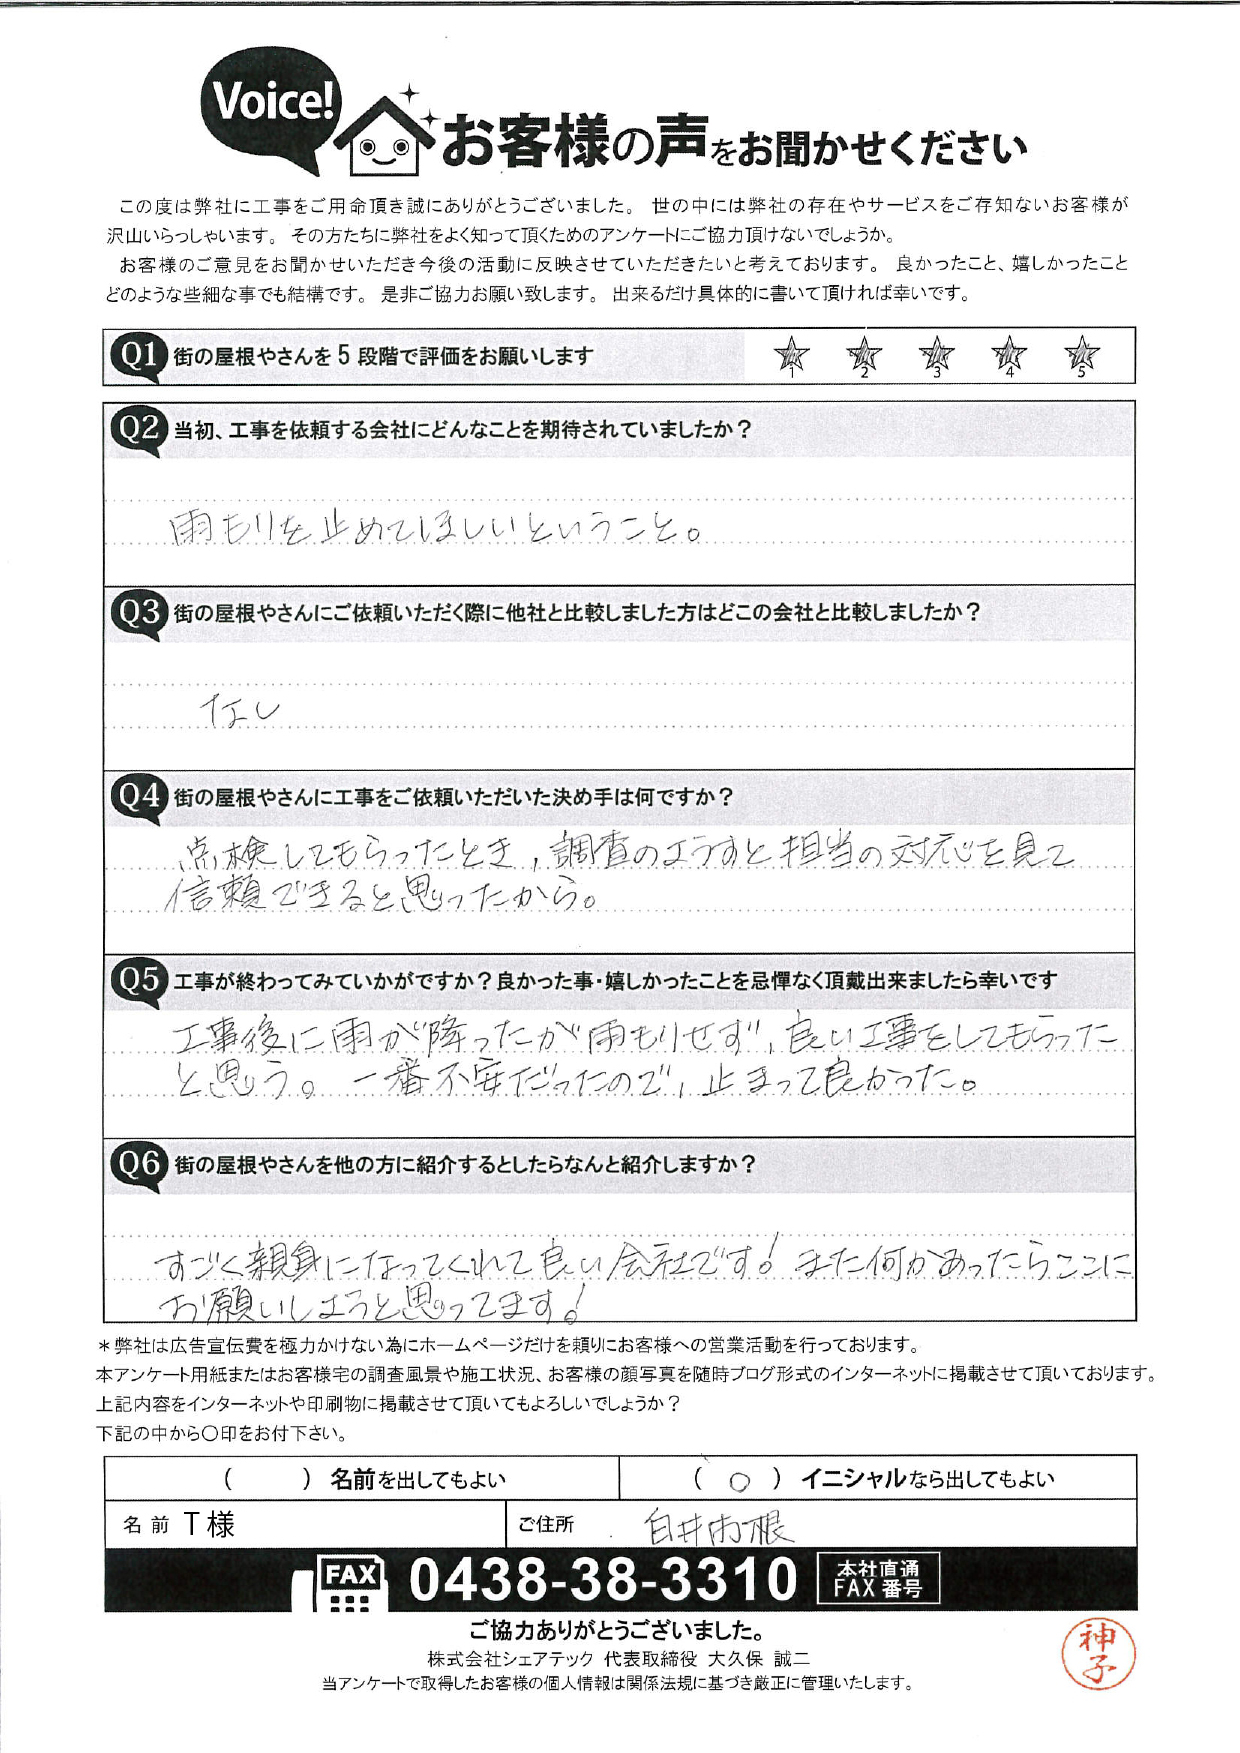 Voice!
お客様の声をお聞かせください
この度は弊社に工事をご用命頂き誠にありがとうございました。 世の中には弊社の存在やサービスをご存知ないお客様が
沢山いらっしゃいます。 その方たちに弊社をよく知って頂くためのアンケートにご協力頂けないでしょうか。
お客様のご意見をお聞かせいただき今後の活動に反映させていただきたいと考えております。 良かったこと、嬉しかったこと
どのような些細な事でも結構です。 是非ご協力お願い致します。 出来るだけ具体的に書いて頂ければ幸いです。
Q1 街の屋根やさんを 5 段階で評価をお願いします
1 2 3 4 5
Q2 当初、工事を依頼する会社にどんなことを期待されていましたか？
雨もりを止めてほしいということ。
Q3 街の屋根やさんにご依頼いただく際に他社と比較しました方はどこの会社と比較しましたか？
なし
Q4 街の屋根やさんに工事をご依頼いただいた決め手は何ですか？
点検してもらったとき，調査のようすと担当の対応を見て
信頼できると思ったから。
Q5 工事が終わってみていかがですか？良かった事・嬉しかったことを忌憚なく頂戴出来ましたら幸いです
工事後に雨が降ったが雨もりせず，良い工事をしてもらった
と思う。一番不安だったので，止まって良かった。
Q6 街の屋根やさんを他の方に紹介するとしたらなんと紹介しますか？
すごく親身になってくれて良い会社です！また何かあったらここに
お願いしようと思ってます！
＊弊社は広告宣伝費を極力かけない為にホームページだけを頼りにお客様への営業活動を行っております。
本アンケート用紙またはお客様宅の調査風景や施工状況、お客様の顔写真を随時ブログ形式のインターネットに掲載させて頂いております。
上記内容をインターネットや印刷物に掲載させて頂いてもよろしいでしょうか？
下記の中から〇印をお付下さい。
（ ）名前を出してもよい （ ○ ）イニシャルなら出してもよい
名 前 T様 ご住所 白井市根
FAX 0438-38-3310 本社直通 FAX 番号
ご協力ありがとうございました。
株式会社シェアテック 代表取締役 大久保 誠二
当アンケートで取得したお客様の個人情報は関係法規に基づき厳正に管理いたします。
神子